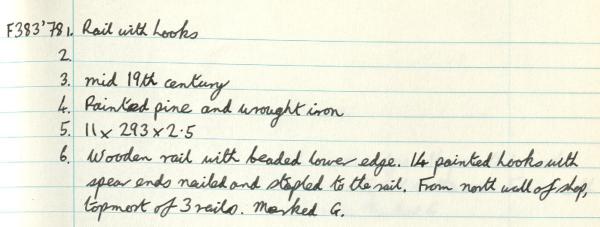 F383'78 1. Rail with hooks
2.
3. mid 19th century
4. Painted pine and wrought iron
5. 11 x 293 x 2.5
6. Wooden rail with beaded lower edge. 14 painted hooks with
spear ends nailed and stapled to the rail. From north wall of shop,
topmost of 3 rails. Marked G.